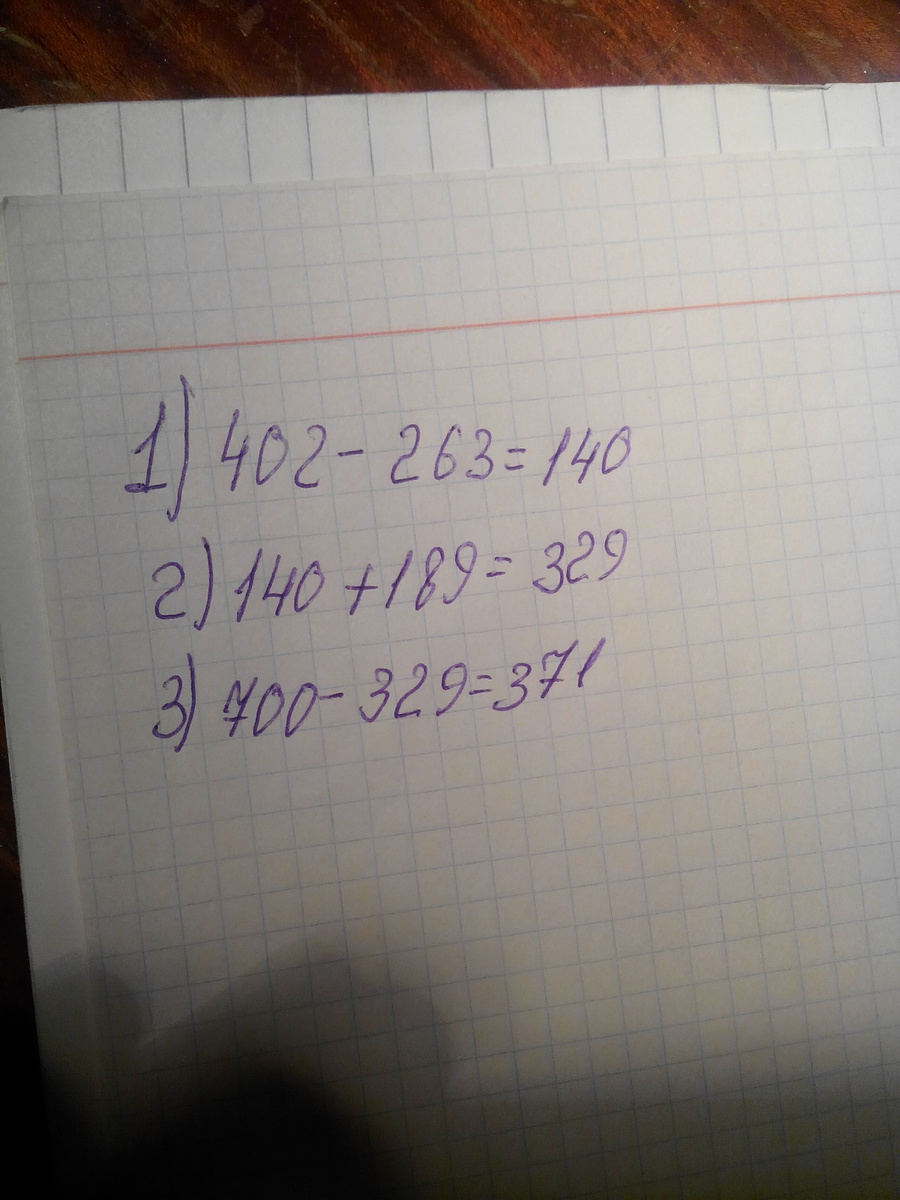 1) 402 - 263 = 140
2) 140 + 189 = 329
3) 700 - 329 = 371